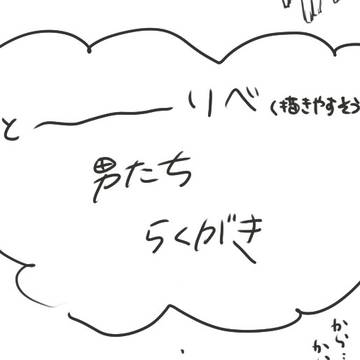 と────りべ(描きやすそう
男たち
らくがき
から…
から